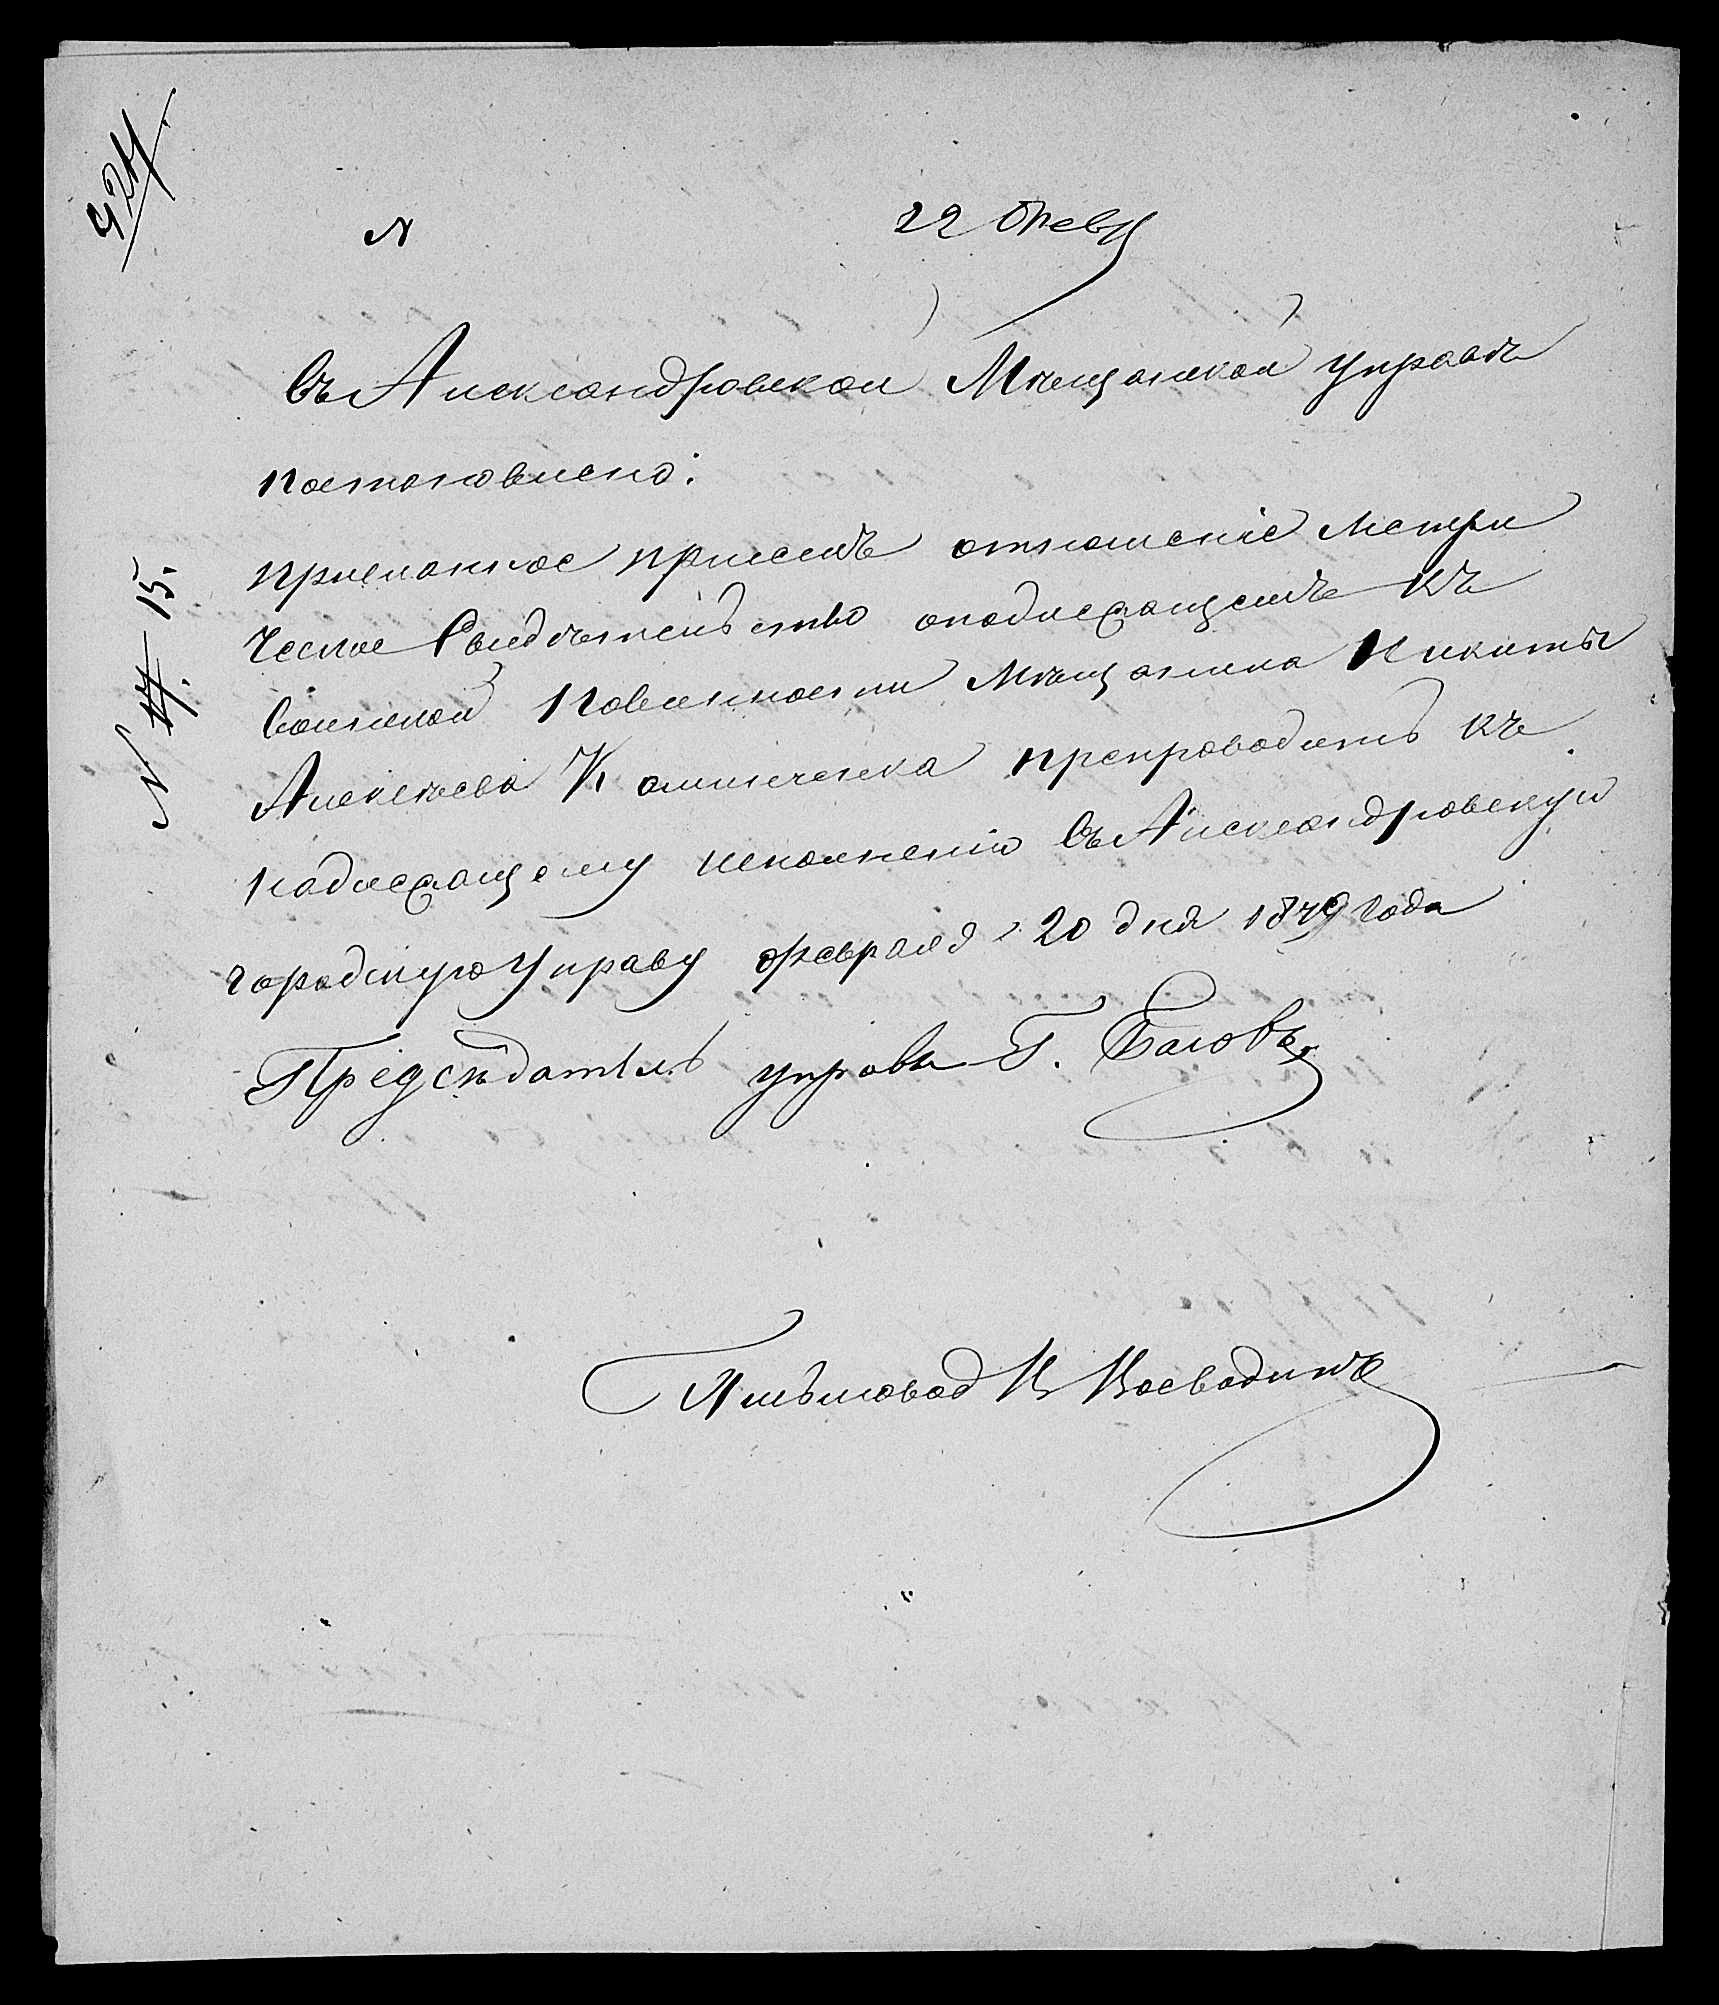 424
№
22 Февр
Въ Александровской Мѣщанской управѣ
постановлено:
присланное присемъ отношеніе Метри
ческое Свидѣтельство оподлежащемъ къ
воинской повинности мѣщанина Никиты
Алексѣева препроводить къ
надлежащему исполненію въ Александровскую
городскую Управу февраля 20 дня 1879 года
№ 15.
Предсѣдатель управы Г. Баловъ
Письмовод Н Воеводинъ